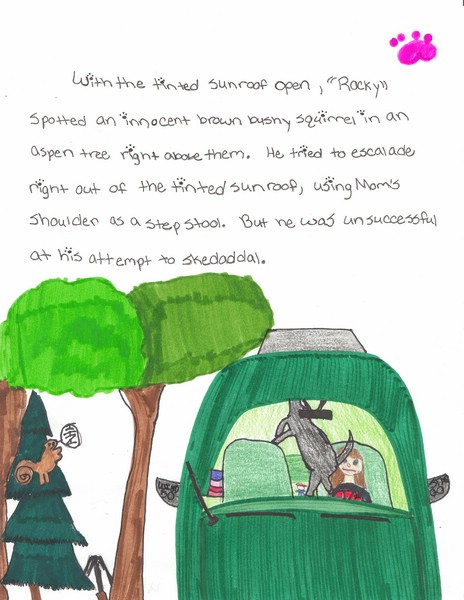 With the tinted sunroof open, "Rocky"
spotted an innocent brown bushy squirrel in an
aspen tree right above them. He tried to escalade
right out of the tinted sunroof, using Mom's
shoulder as a step stool. But he was unsuccessful
at his attempt to skedaddal.